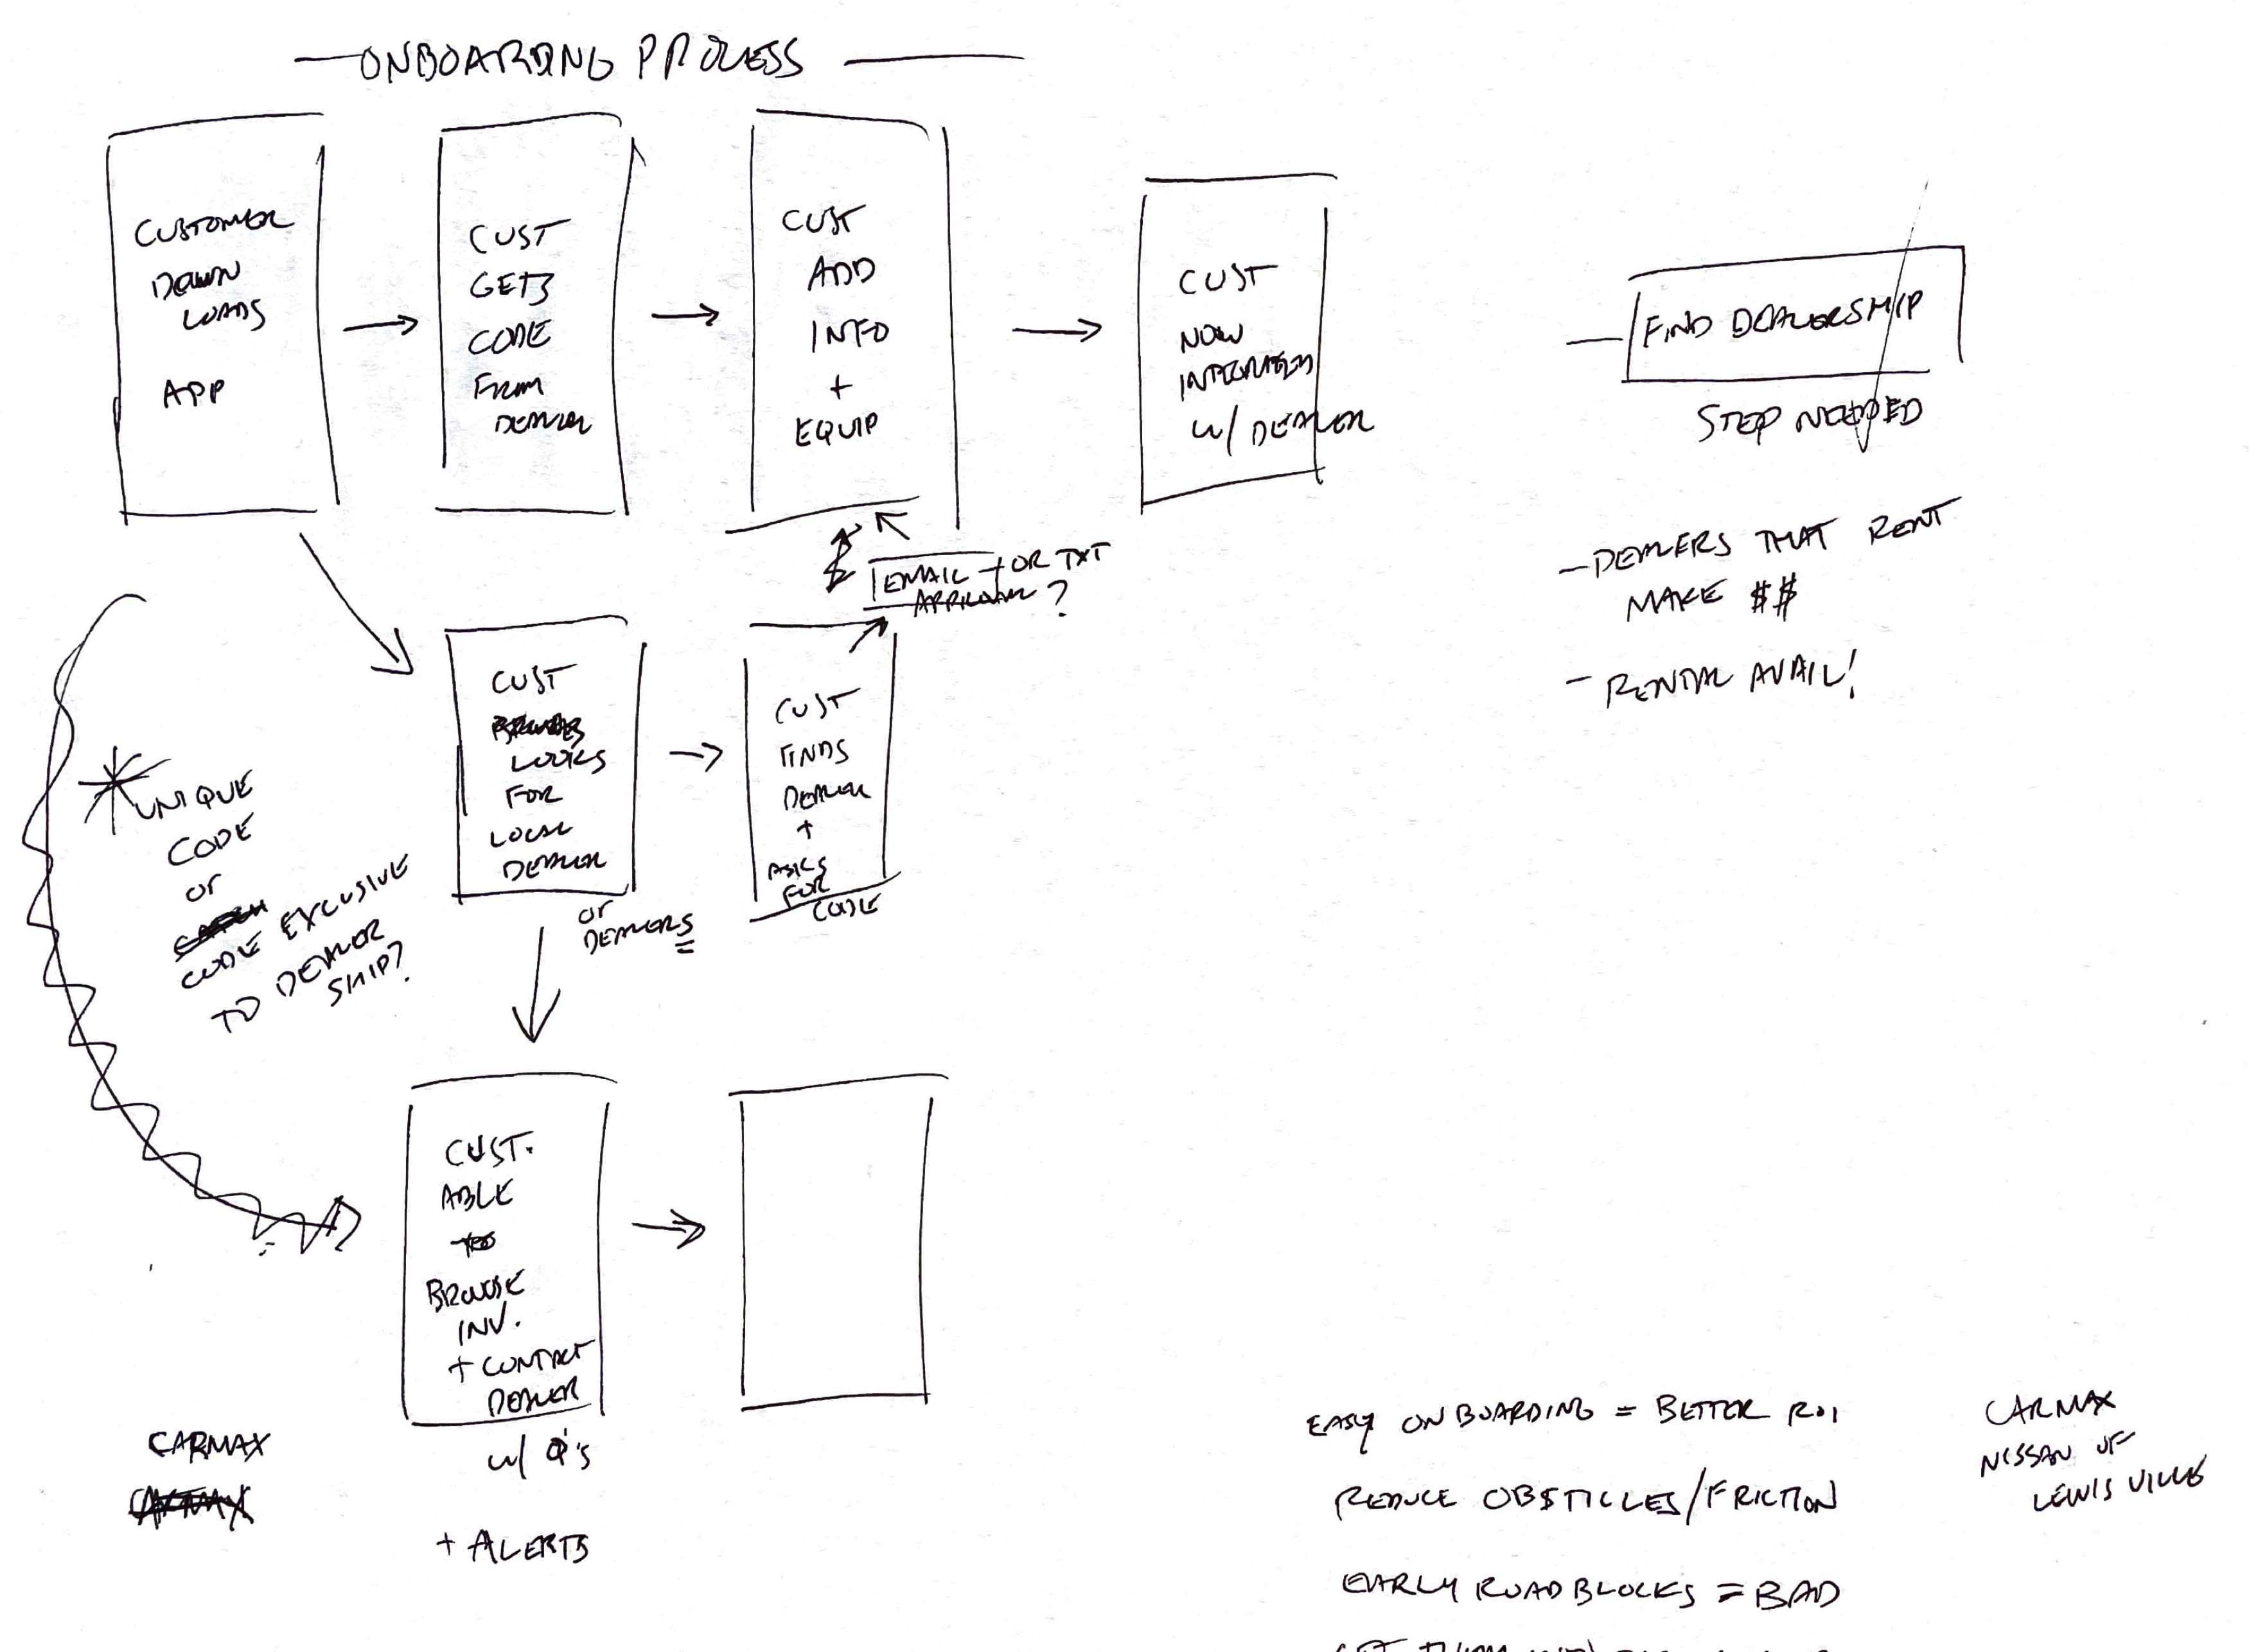 ONBOARDING PROCESS
CUSTOMER
DOWN
LOADS
APP
CUST
GETS
CODE
FROM
DEALER
CUST
ADD
INFO
+
EQUIP
CUST
NOW
INTEGRATED
W/ DEALER
FIND DEALERSHIP
STEP NEEDED
- DEALERS THAT RENT
MAKE $$
- RENTAL AVAIL!
EMAIL + OR TXT
APPROVAL ?
CUST
LOOKS
FOR
LOCAL
DEALER
or
DEALERS
CUST
FINDS
DEALER
+
ASKS
FOR
CODE
UNIQUE
CODE
or
CODE EXCUSIVE
TO DEALER
SHIP?
CUST.
ABLE
TO
BROWSE
INV.
+ CONTACT
DEALER
w/ Q's
+ ALERTS
CARMAX
CARMAX
EASY ONBOARDING = BETTER ROI
REDUCE OBSTICLES/FRICTION
EARLY ROADBLOCKS = BAD
CARMAX
NISSAN OF
LEWISVILLE